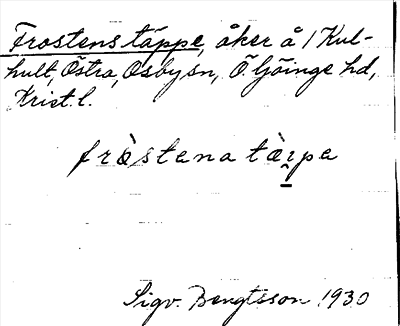 Frostenstäppe, åker å 1 Kul-
hult, Östra, Osby sn, Ö. Göinge hd,
Krist. l.
fròstena tàpe
Sigv. Bengtsson 1930